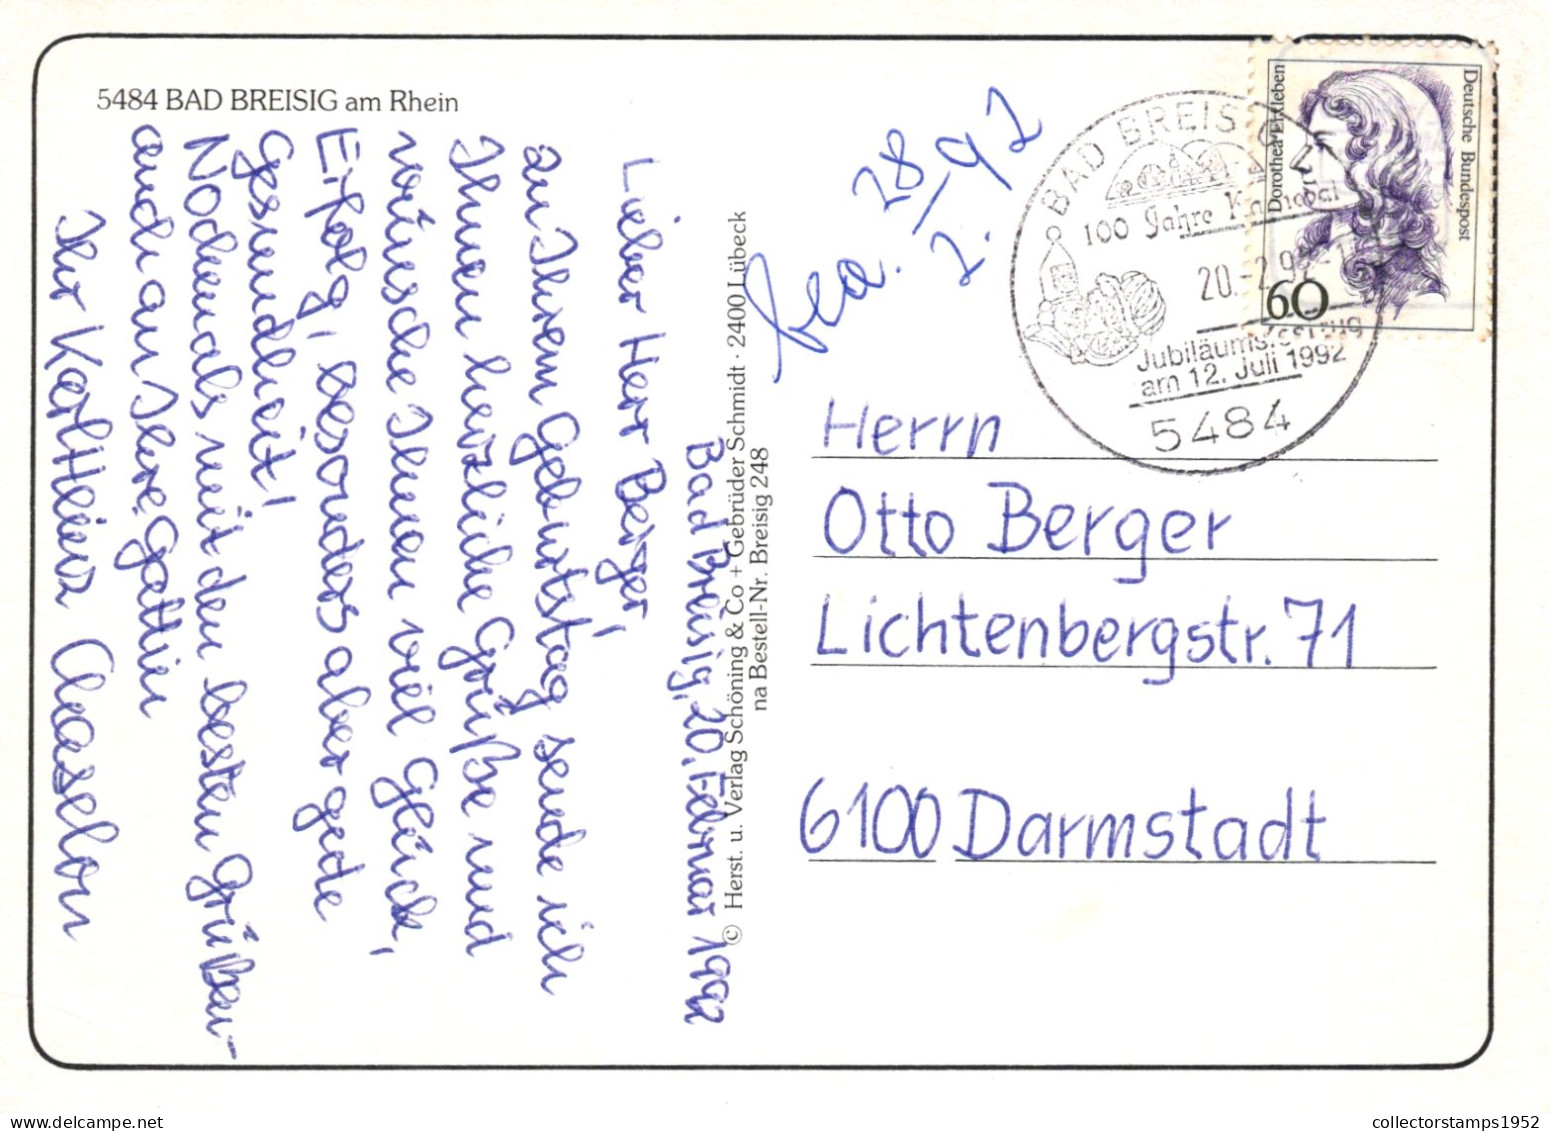 5484 BAD BREISIG am Rhein
Bad Breisig, 20. Februar 1992
Lieber Herr Berger,
zu Ihrem Geburtstag sende ich
Ihnen herzliche Grüße und
wünsche Ihnen viel Glück,
Erfolg, besonders aber gute
Gesundheit!
Nochmals mit den besten Grüßen -
auch an Ihre Gattin
Ihr Karl Heinz
© Herst. u. Verlag Schöning & Co + Gebrüder Schmidt · 2400 Lübeck
na Bestell-Nr. Breisig 248
28
2. 92
BAD BREISIG 1
100 Jahre Karneval
20.-2.92
Jubiläumsfestzug
am 12. Juli 1992
5484
Dorothea Erxleben
Deutsche Bundespost
60
Herrn
Otto Berger
Lichtenbergstr. 71
6100 Darmstadt
collectorstamps1952